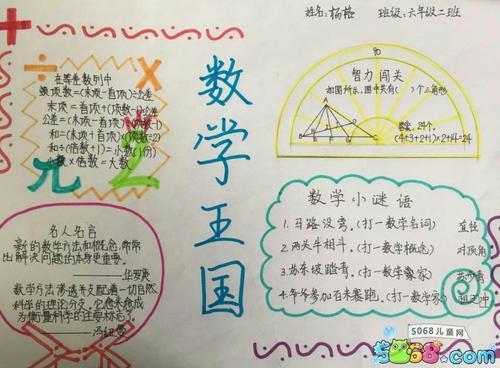 姓名:杨格 班级:六年级二班
数学王国
在等差数列中
项数=(末项-首项)÷公差
末项=首项+(项数-1)×公差
公差=(末项-首项)÷(项数-1)
和=(末项+首项)×(项数÷2)
和÷(倍数+1)=小数(1份)
小数×倍数=大数
名人名言
新的数学方法和概念,常常
比解决问题的本身更重要。
——华罗庚
数学方法渗透并支配着一切自然
科学的理论分支。它愈来愈成
为衡量科学的主要标志了。
——冯纽曼
90
智力闯关
如图所示,图中共有( )个三角形。
答案:24个。
(4+3+2+1)×2+14=24
数学小谜语
1.马路没弯。(打一数学名词) 直径
2.两头牛相斗。(打一数学概念) 对顶角
3.苏东坡踏青。(打一数学家) 苏步青
4.爷爷参加百米赛跑。(打一数学家) 祖冲
5068儿童网
5068.com